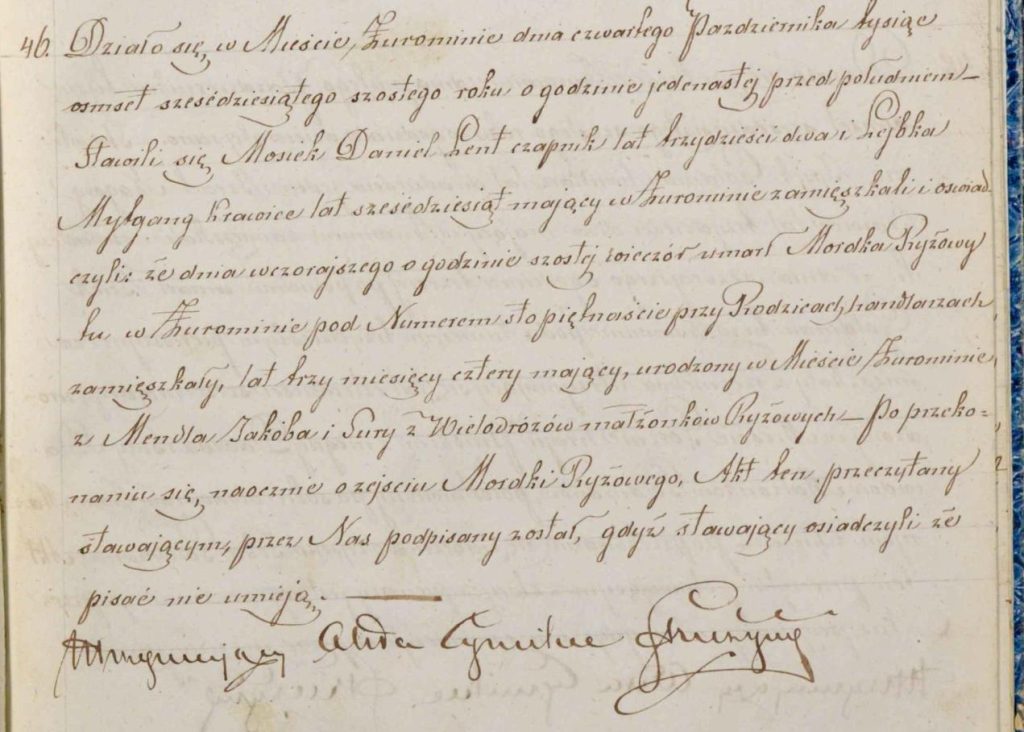 46. Działo się, w Mieście, Żurominie dnia czwartego Października tysiąc
osmset sześćdziesiątego szostego roku o godzinie jedenastej przed południem –
Stawili się, Mosiek Daniel Lent czapnik lat trzydzieści dwa i Lejbka
Mylgang krawiec lat sześćdziesiąt mający w Żurominie zamięszkali i oswiad-
czyli: że dnia wczorajszego o godzinie szostej wieczór umarł Mordka Ryżowy
tu w Żurominie pod Numerem sto piętnaście przy Rodzicach, handlarzach
zamięszkały, lat trzy miesięcy cztery mający, urodzony w Mieście, Żurominie,
z Mendla Jakóba i Sury z Wielodrózów małżonków Ryżowych – Po przeko-
naniu się, naocznie o zejściu Mordki Ryżowego, Akt ten przeczytany
stawającym, przez Nas podpisany został, gdyż stawający osiadczyli że
pisać nie umieją. –
Utrzymujący Akta Cywilne